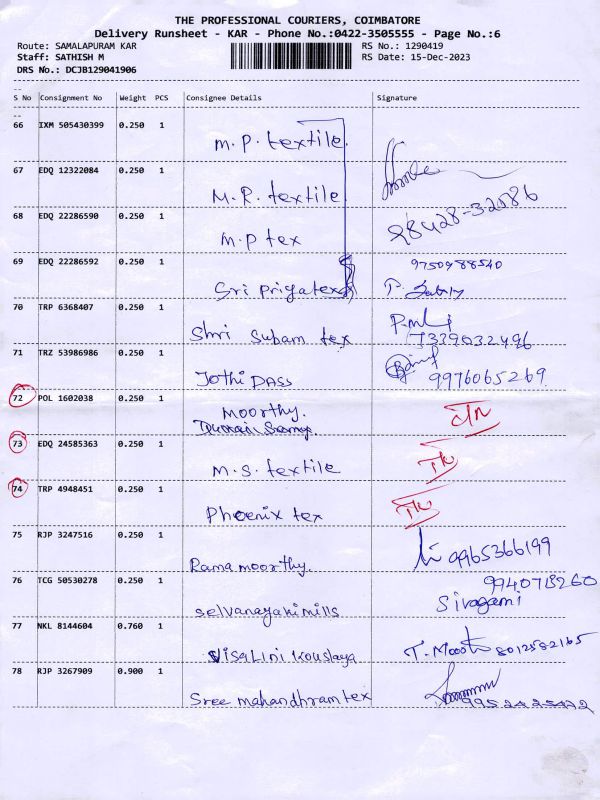 THE PROFESSIONAL COURIERS, COIMBATORE
Delivery Runsheet - KAR - Phone No.:0422-3505555 - Page No.:6
Route: SAMALAPURAM KAR RS No.: 1290419
Staff: SATHISH M RS Date: 15-Dec-2023
DRS No.: DCJB129041906
S No Consignment No Weight PCS Consignee Details Signature
66 IXM 505430399 0.250 1 M.P. textile
67 EDQ 12322084 0.250 1 M.R. textile
68 EDQ 22286590 0.250 1 M.P tex 98428-32086
69 EDQ 22286592 0.250 1 Sri Priya tex 9750988540
70 TRP 6368407 0.250 1 Shri Subam tex 7339032496
71 TRZ 53986986 0.250 1 Jothi DASS 9976065269
72 POL 1602038 0.250 1 Moorthy.
73 EDQ 24585363 0.250 1 M.S. textile
74 TRP 4948451 0.250 1 Phoenix tex
75 RJP 3247516 0.250 1 Rama moorthy. 9965366199
76 TCG 50530278 0.250 1 Selvanayaki mills 9940718260
Sivagami
77 NKL 8144604 0.760 1 Visalini Kouslaya 8012582165
78 RJP 3267909 0.900 1 Sree mahandhram tex